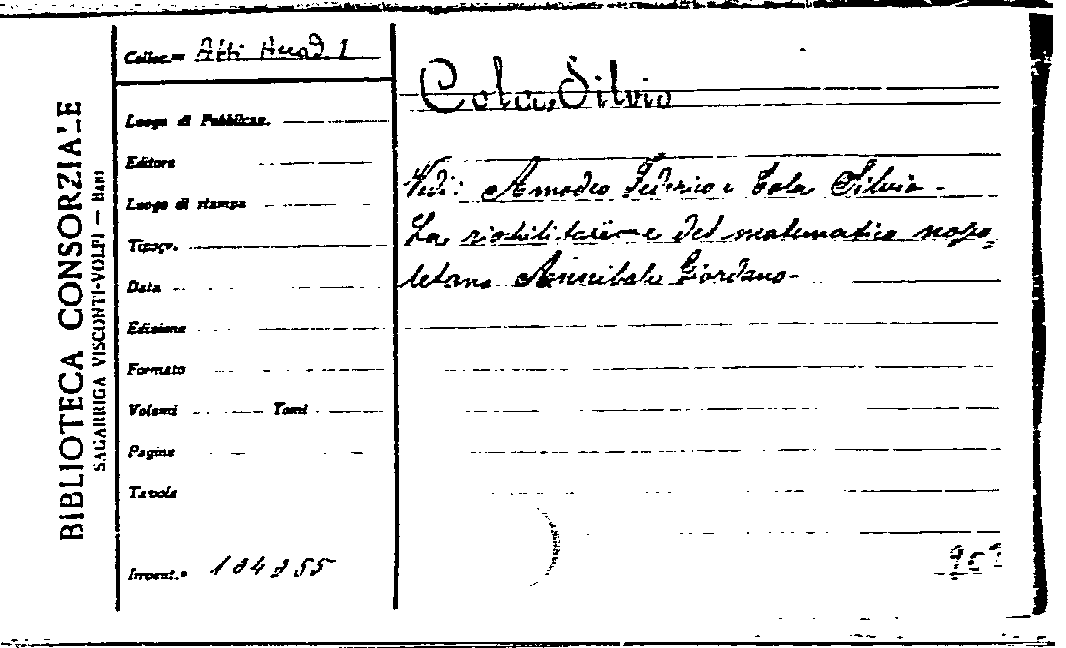 BIBLIOTECA CONSORZIALE
SAGARRIGA VISCONTI-VOLPI — BARI
Colloc.ne Atti Accad. I
Luogo di Pubblicaz.
Editore
Luogo di stampa
Tipogr.
Data
Edizione
Formato
Volumi Tomi
Pagine
Tavole
Invent.º
Cola, Silvio
Vedi: Amodeo Federico e Cola Silvio -
La riabilitazione del matematico napo,
letano Annibale Giordano -